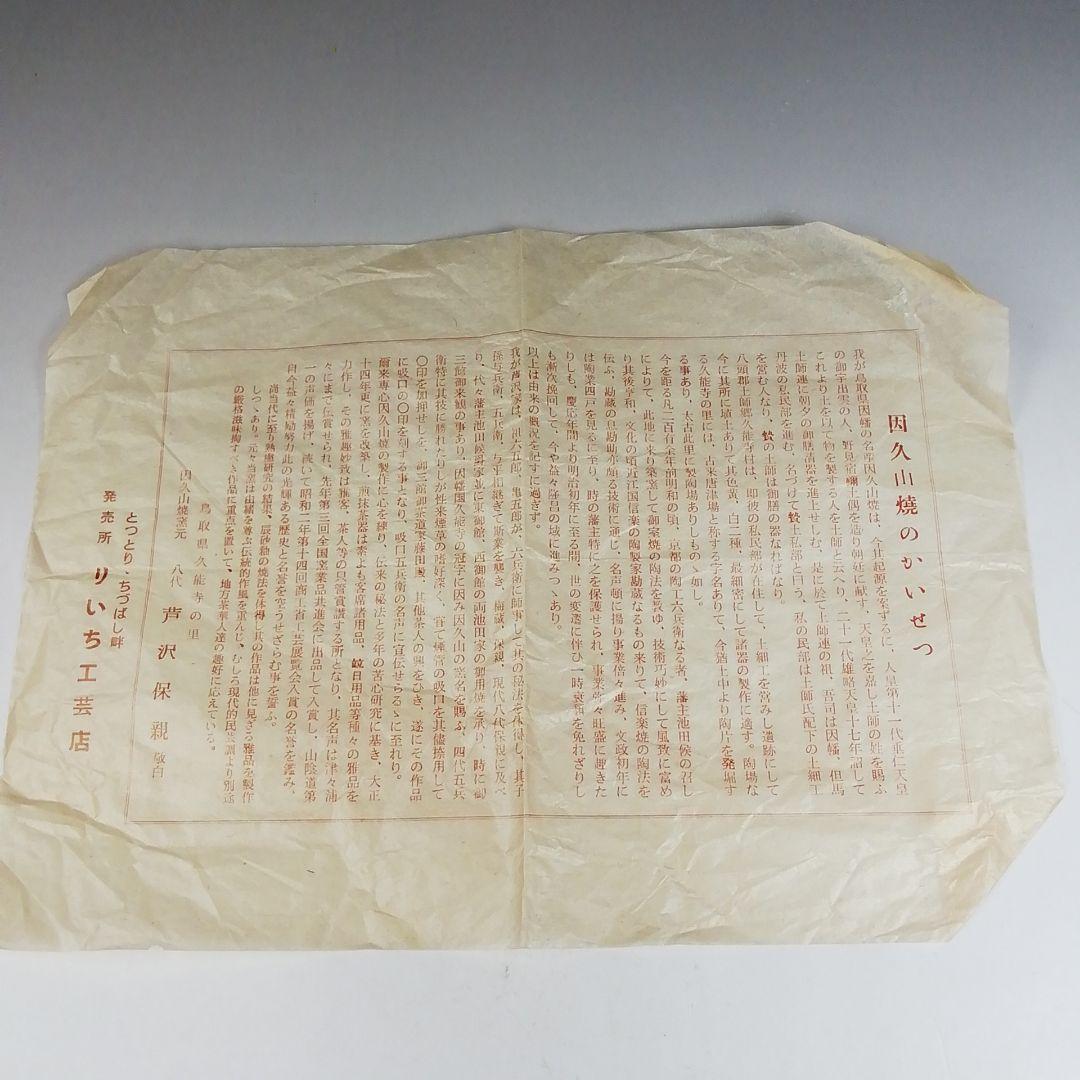 因久山燒のかいせつ
我が鳥取県因幡の名產因久山焼は、今其起源を案ずるに、人皇第十一代垂仁天皇
の御宇出雲の人、野見宿禰土偶を造り朝廷に献す、天皇之を嘉し土師の姓を賜ふ
これより土を以て物を製する人を土師と云へり、二十一代雄略天皇十七年詔して
土師連に朝夕の御膳清器を進上せしむ、是に於て土師連の祖、吾司は因幡、但馬
丹波の私民部を進む、名づけて贄土師部と曰う、私の民部は土師氏配下の土細工
を営む人なり、贄の土師は御膳の器なればなり。
八頭郡土師郷久能寺目は、即彼の私民部が在住して、土細工を営みし遺跡にして
今に其所に埴土ありて其色黄、白二種、最細密にして諸器の製作に適す。陶場な
る久能寺の里には、古来唐津場と称する字名ありて、今猶土中より陶片を発堀す
る事あり、太古此里に製陶場ありしものゝ如し。
今を距る凡二百有余年前明和の頃、京都の陶工六兵衛なる者、藩主池田候の召し
によりて、此地に来り築窯して御室焼の陶法を教ゆ、技術巧妙にして風致に富め
り其後享和、文化の頃近江国信楽の陶製家勘蔵なるもの来りて、信楽焼の陶法を
伝ふ、勘蔵の息勘助亦頗る技術に通じ、名声頓に揚り事業倍々進み、文政初年に
は陶業四戸を見るに至り、時の藩主特に之を保護せられ、事業弥々旺盛に趣きた
りしも、慶応年間より明治初年に至る間、世の変遷に伴ひ一時衰頽を免れざりし
も漸次挽回して、今や益々隆昌の域に進みつゝあり。
以上は由来の概況を記すに過ぎず。
我が芦沢家は、祖六五郎、亀五郎が、六兵衛に師事して其の秘法を体得し、其子
孫与兵衛、五兵衛、与平相継ぎて斯業を襲ぎ、梅蔵、保親、現代八代保親に及べ
り、代々藩主池田候爵家並に東御館、西御館の両池田家の御用焼を承り、時に御
三館御来観の事あり、因幡国久能寺の冠字に因み因久山の窯名を賜ふ、四代五兵
衛特に其技に勝れたりしが性来煙草の嗜好深く、嘗て煙管の吸口を其儘捺用して
〇印を加押せしを、御三館御茶道家藤田園、其他茶人の興をひき、遂にその作品
に吸口の〇印を刻する事となり、吸口五兵衛の名声に宣伝せらるゝに至れり。
爾来専心因久山焼の製作に心を練り、伝来の秘法と多年の苦心研究に基き、大正
十四年更に窯を改築し、煎抹茶器は素よりも客席諸用品、並日用品等種々の雅品を
力作し、その雅趣妙致は雅客、茶人等の只管賞讃する所となり、其名声は津々浦
々にまで伝賞せられ、先年第三回全国窯業品共進会に出品して入賞し、山陰道第
一の声価を揚げ、次いで昭和二年第十四回商工省工芸展覧会入賞の名誉を鑑み、
自今益々精励努力此の光輝ある歴史と名誉を空うせざらむ事を誓ふ。
尚当代に至り熟慮研究の結果、辰砂釉の焼法を体得し其の作品は他に見ざる雅品を製作
しつゝあり。元々当窯は古陶を尊ぶ伝統的作風を重んじ、むしろ現代的民芸調より別途
の厳格滋味掬すべき作品に重点を置いて、地方茶華人達の趣好に応えている。
鳥取県久能寺の里
因久山焼窯元 八代 芦沢保親 敬白
とつとり・ちづばし畔
発売所 りいち工芸店